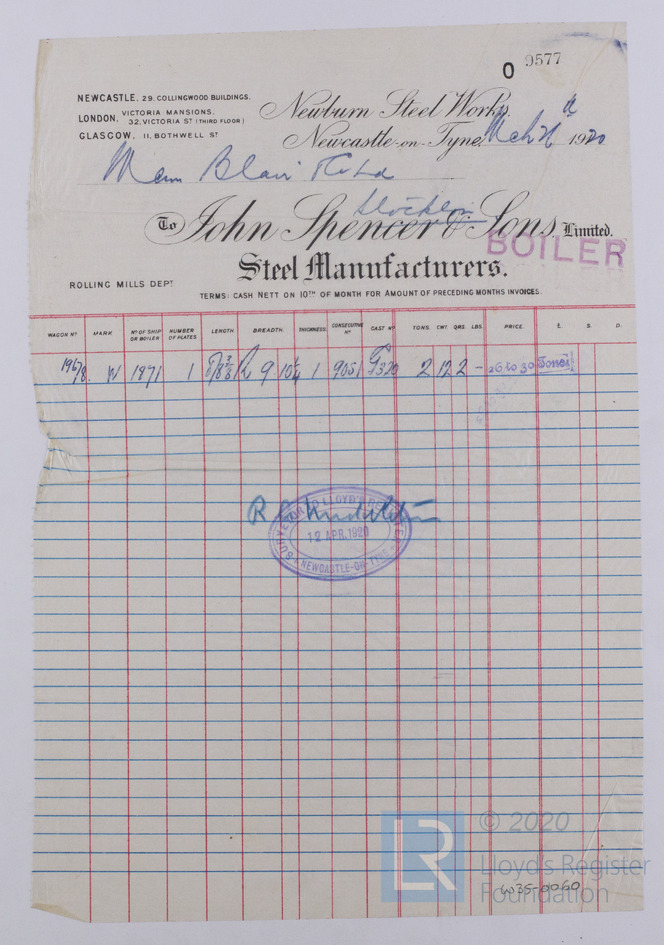 O 9577
NEWCASTLE, 29, COLLINGWOOD BUILDINGS.
LONDON, VICTORIA MANSIONS,
32, VICTORIA ST (THIRD FLOOR)
GLASGOW, 11, BOTHWELL ST
Newburn Steel Works.
Newcastle-on-Tyne, 1920
Blair
Stockton
To John Spencer & Sons, Limited.
BOILER
Steel Manufacturers.
ROLLING MILLS DEPT
TERMS: CASH NETT ON 10TH OF MONTH FOR AMOUNT OF PRECEDING MONTHS INVOICES.
WAGON No MARK No OF SHIP OR BOILER NUMBER OF PLATES LENGTH. BREADTH. THICKNESS. CONSECUTIVE No CAST No TONS. CWT. QRS. LBS. PRICE. £. S. D.
W 1871 1 9 10¼ 1 9051 2 12 2 - 26 to 30 Tons
SURVEYOR TO LLOYD'S REGISTER
12 APR. 1920
NEWCASTLE-ON-TYNE
LR
© 2020
Lloyd's Register
Foundation
W35-0060